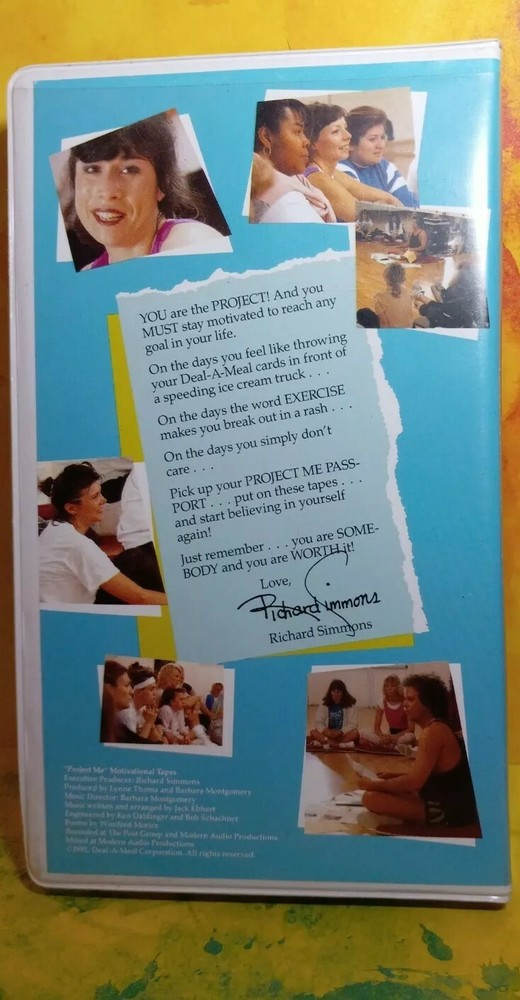 YOU are the PROJECT! And you
MUST stay motivated to reach any
goal in your life.
On the days you feel like throwing
your Deal-A-Meal cards in front of
a speeding ice cream truck . . .
On the days the word EXERCISE
makes you break out in a rash . . .
On the days you simply don't
care . . .
Pick up your PROJECT ME PASS-
PORT . . . put on these tapes . . .
and start believing in yourself
again!
Just remember . . . you are SOME-
BODY and you are WORTH it!
Love,
Richard Simmons
Richard Simmons
"Project Me" Motivational Tapes
Executive Producer: Richard Simmons
Produced by Lynne Thoma and Barbara Montgomery
Music Director: Barbara Montgomery
Music written and arranged by Jack
Engineered by Ken and Bob Schachner
Poems by Winifred
Recorded at The Post Group and Modern Audio Productions
Mixed at Modern Audio Productions
Deal-A-Meal Corporation. All rights reserved.